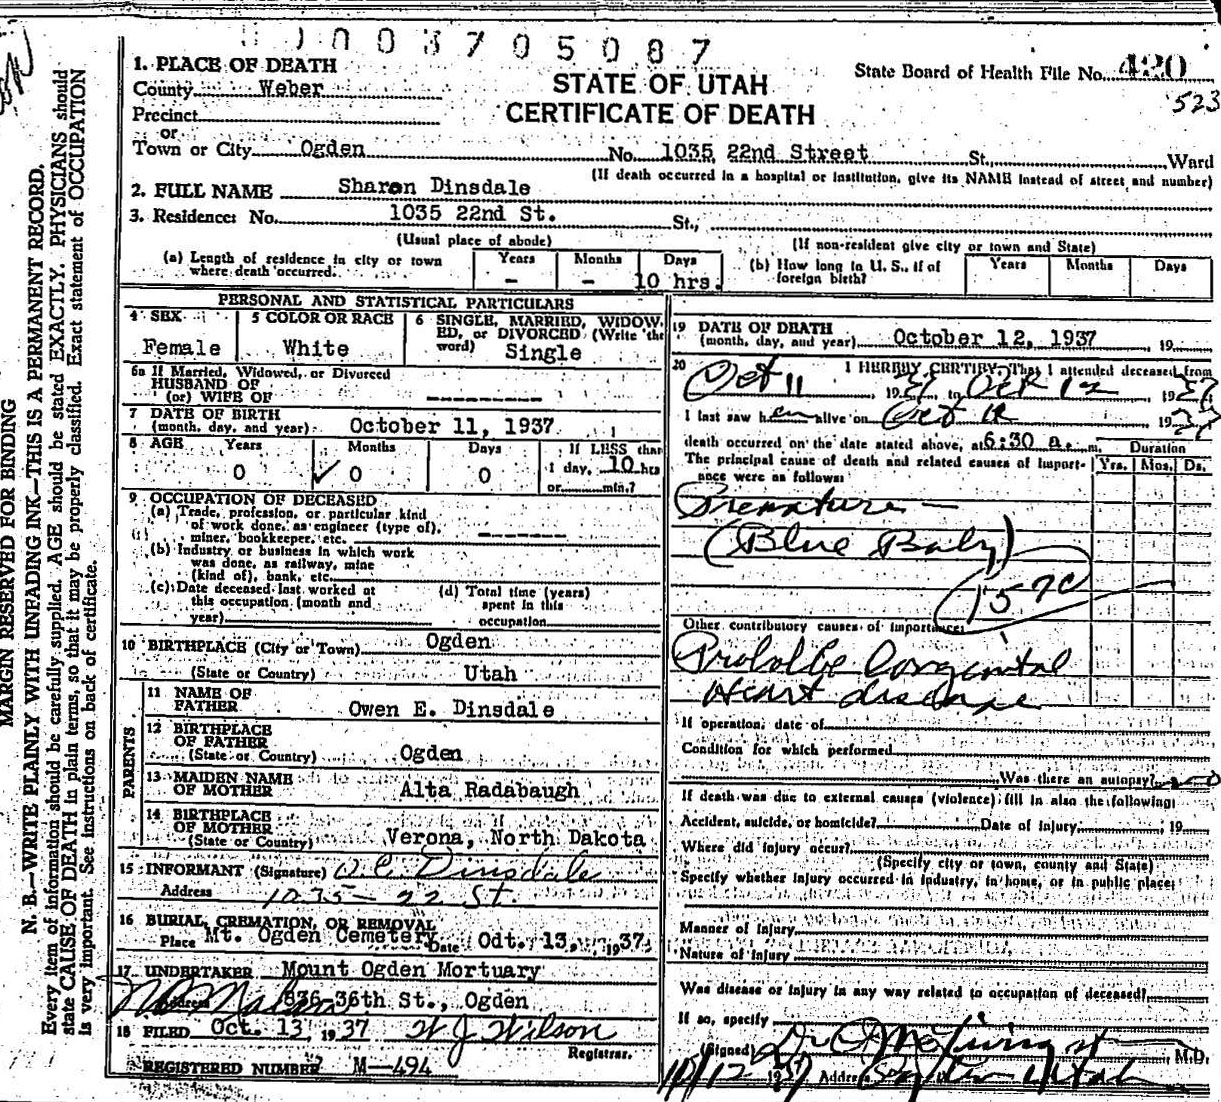 0003705087
1. PLACE OF DEATH
County Weber
STATE OF UTAH
CERTIFICATE OF DEATH
State Board of Health File No. 420
523
Precinct
or
Town or City Ogden No. 1035 22nd Street St. Ward
(If death occurred in a hospital or institution, give its NAME instead of street and number)
2. FULL NAME Sharon Dinsdale
3. Residence: No. 1035 22nd St. St.,
(Usual place of abode) (If non-resident give city or town and State)
(a) Length of residence in city or town where death occurred. Years - Months - Days 10 hrs.
(b) How long in U. S., if of foreign birth? Years Months Days
PERSONAL AND STATISTICAL PARTICULARS
4 SEX Female
5 COLOR OR RACE White
6 SINGLE, MARRIED, WIDOWED, or DIVORCED (Write the word) Single
6a If Married, Widowed, or Divorced
HUSBAND OF
(or) WIFE OF -------
7 DATE OF BIRTH
(month, day, and year) October 11, 1937
8 AGE Years 0 Months 0 Days 0 If LESS than 1 day, 10 hrs or min.?
9 OCCUPATION OF DECEASED
(a) Trade, profession, or particular kind
of work done, as engineer (type of),
miner, bookkeeper, etc. ------
(b) Industry or business in which work
was done, as railway, mine
(kind of), bank, etc.
(c) Date deceased last worked at
this occupation (month and
year)
(d) Total time (years)
spent in this
occupation
10 BIRTHPLACE (City or Town) Ogden
(State or Country) Utah
PARENTS
11 NAME OF
FATHER Owen E. Dinsdale
12 BIRTHPLACE
OF FATHER
(State or Country) Ogden
13 MAIDEN NAME
OF MOTHER Alta Radabaugh
14 BIRTHPLACE
OF MOTHER
(State or Country) Verona, North Dakota
15 INFORMANT (Signature) O. E. Dinsdale
Address 1035-22 St.
16 BURIAL, CREMATION, OR REMOVAL
Place Mt. Ogden Cemetery Date Odt. 13, 1937.
17 UNDERTAKER Mount Ogden Mortuary
Address 836 36th St., Ogden
18 FILED Oct. 13, 1937 W J Wilson
Registrar.
REGISTERED NUMBER M-494
19 DATE OF DEATH
(month, day, and year) October 12, 1937 , 19
20 I HEREBY CERTIFY, That I attended deceased from
Oct 11 1937 to Oct 12 , 1937
I last saw her alive on Oct 12 , 1937
death occurred on the date stated above, at 6:30 a. m.
The principal cause of death and related causes of importance were as follows:
Duration
Yrs. Mos. Ds.
Premature -
(Blue Baby)
157c
Other contributory causes of importance:
Probable Congenital
Heart disease
If operation, date of
Condition for which performed
Was there an autopsy? no
If death was due to external causes (violence) fill in also the following:
Accident, suicide, or homicide? Date of injury , 19
Where did injury occur?
(Specify city or town, county and State)
Specify whether injury occurred in industry, in home, or in public place:
Manner of injury
Nature of injury
Was disease or injury in any way related to occupation of deceased?
If so, specify
(Signed) Dr , M.D.
10/12 1937 Address Ogden Utah
MARGIN RESERVED FOR BINDING
N. B.—WRITE PLAINLY WITH UNFADING INK—THIS IS A PERMANENT RECORD.
Every item of information should be carefully supplied. AGE should be stated EXACTLY. PHYSICIANS should
state CAUSE OF DEATH in plain terms, so that it may be properly classified. Exact statement of OCCUPATION
is very important. See instructions on back of certificate.